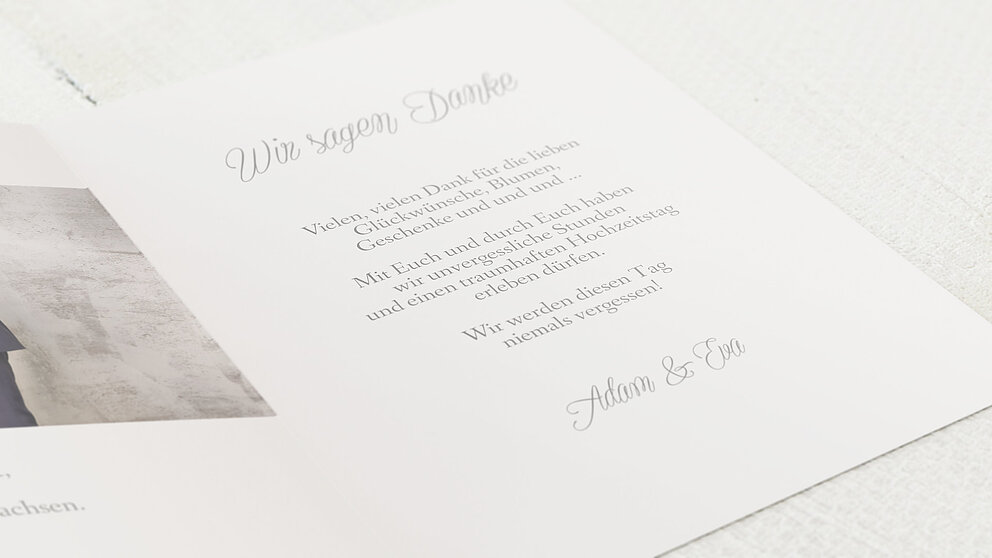 Wir sagen Danke
Vielen, vielen Dank für die lieben
Glückwünsche, Blumen,
Geschenke und und und ...
Mit Euch und durch Euch haben
wir unvergessliche Stunden
und einen traumhaften Hochzeitstag
erleben dürfen.
Wir werden diesen Tag
niemals vergessen!
Adam & Eva